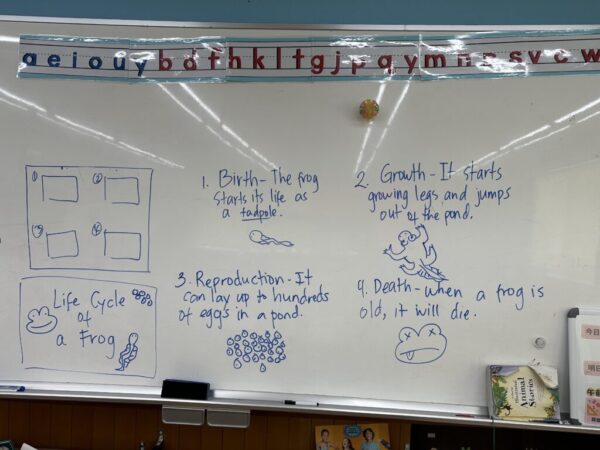 a e i o u y b d f h k l t g j p q y m n r s v c w
① ②
③ ④
Life Cycle
of
a Frog
1. Birth - The frog
starts its life as
a tadpole.
2. Growth - It starts
growing legs and jumps
out of the pond.
3. Reproduction - It
can lay up to hundreds
of eggs in a pond.
4. Death - when a frog is
old, it will die.
Animal
Stories
今日
明日